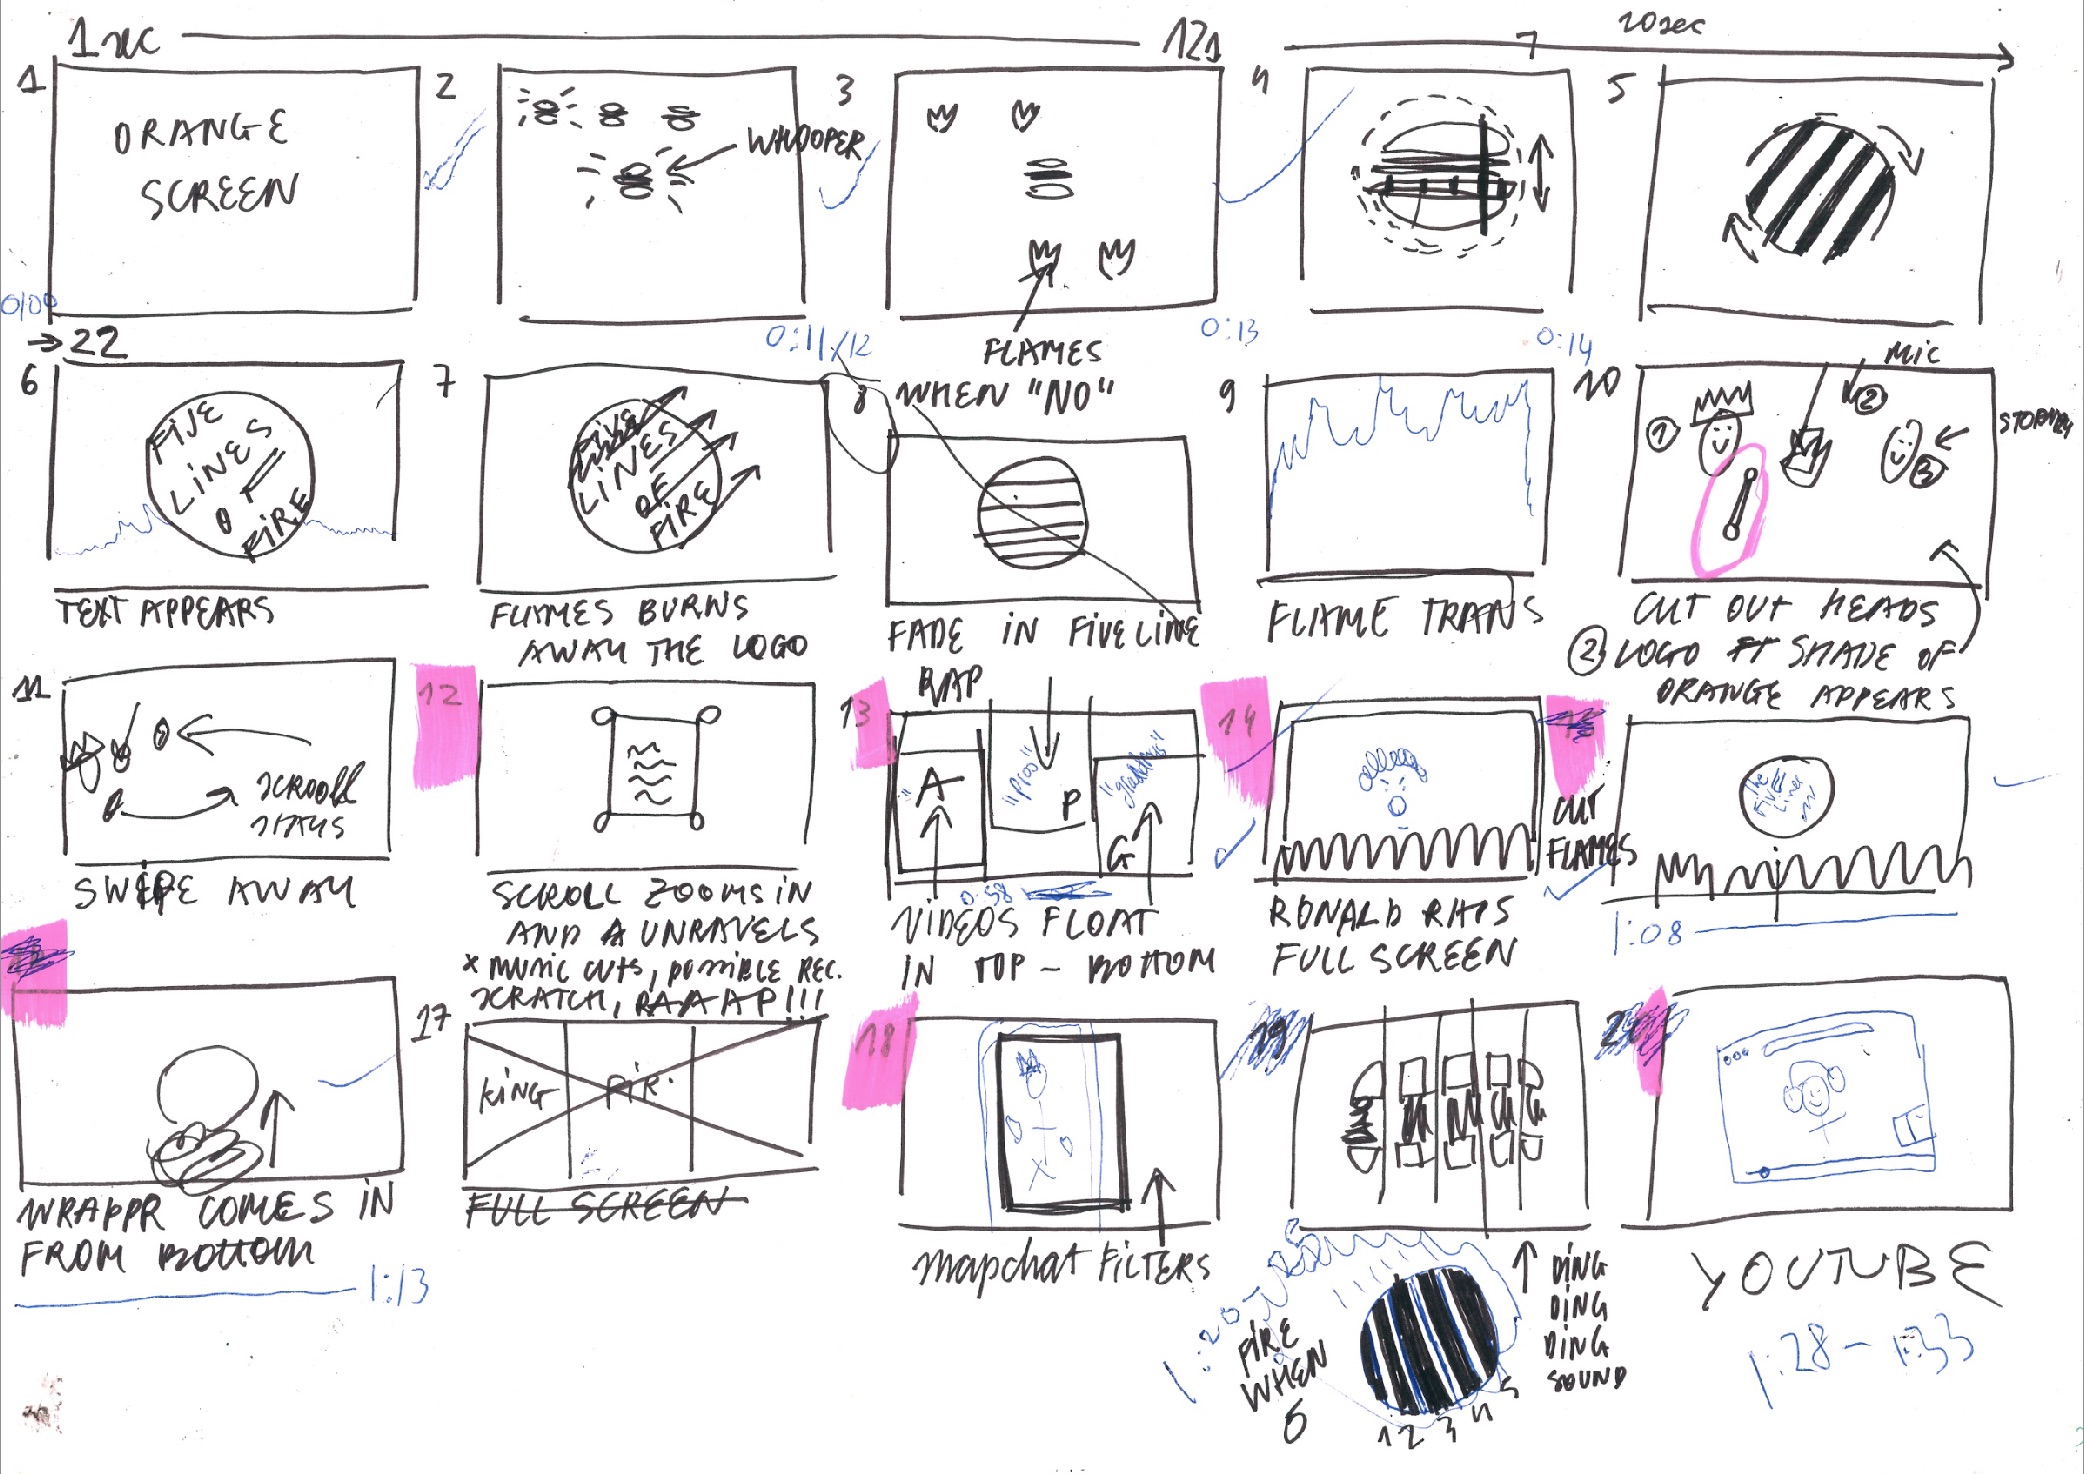 1 sec
12s
7
20sec
1
ORANGE
SCREEN
0/00
2
WHOOPER
0:11/12
3
FLAMES
WHEN "NO"
0:13
4
0:14
5
→ 22
6
FIVE
LINES
OF
FIRE
TEXT APPEARS
7
FIVE
LINES
OF
FIRE
FLAMES BURNS
AWAY THE LOGO
8
FADE IN FIVE LINE
9
FLAME TRANS
10
MIC
1
2
3
CUT OUT HEADS
2 LOGO SHADE OF
ORANGE APPEARS
11
SCROOLL
STAYS
SWIPE AWAY
12
SCROLL ZOOMS IN
AND UNRAVELS
* MUSIC CUTS, POSSIBLE REC.
SCRATCH, RAAAAP!!!
13
RAP
"A
"PICO"
P
G
0:58
VIDEOS FLOAT
IN TOP - BOTTOM
14
RONALD RAPS
FULL SCREEN
CUT
FLAMES
THE
FIVE
LINES
1:08
WRAPPR COMES IN
FROM BOTTOM
1:13
17
KING
FULL SCREEN
18
snapchat FILTERS
19
DING
DING
DING
SOUND
1:20
FIRE
WHEN
5
1 2 3 4 5
20
YOUTUBE
1:28 - 1:33